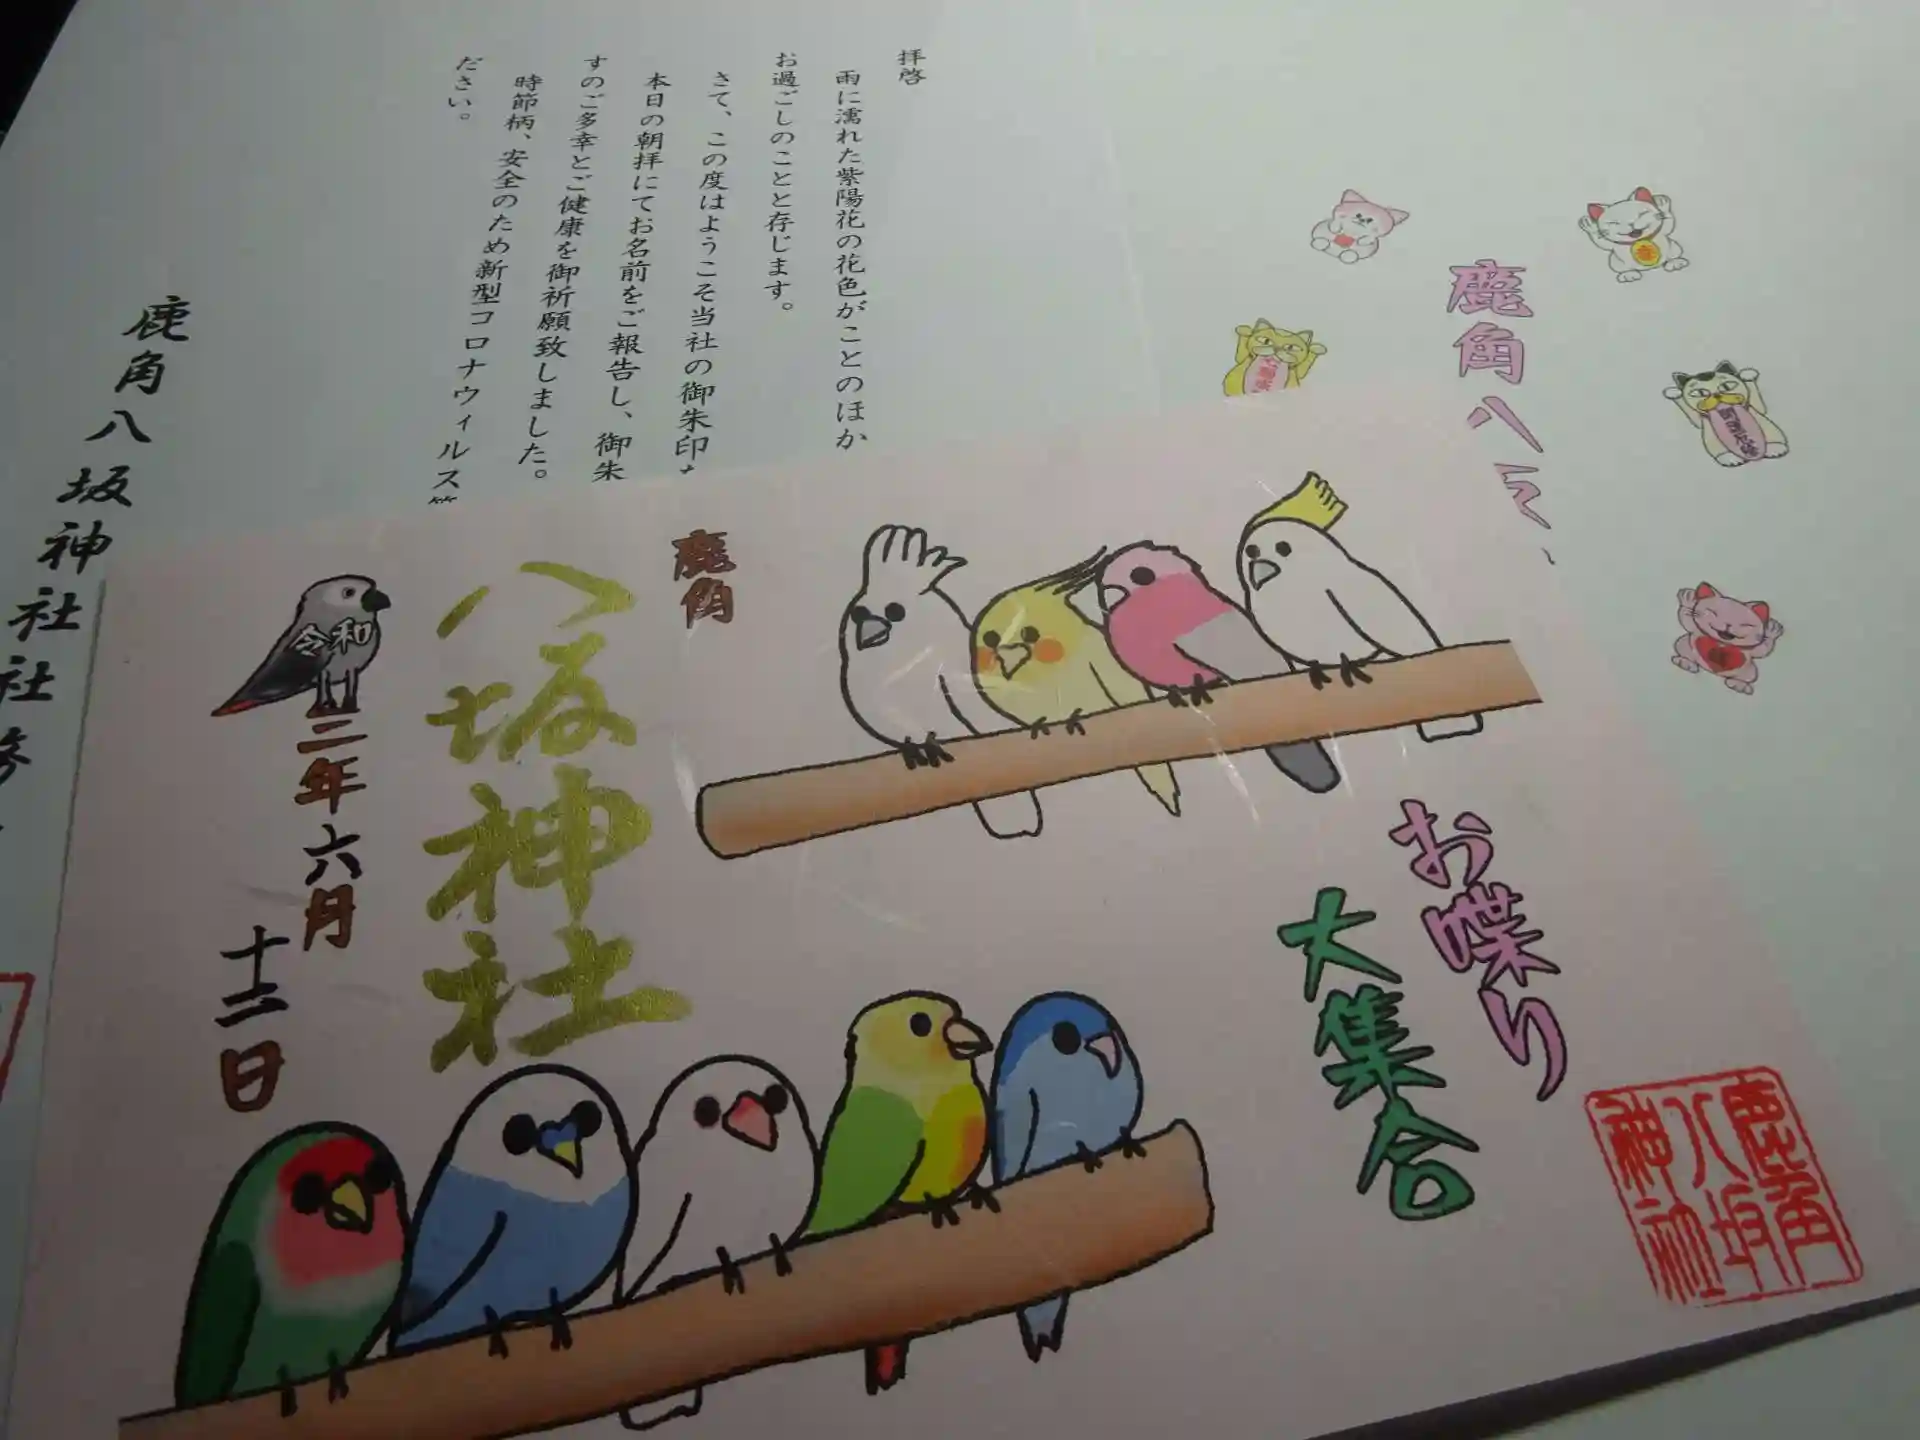 拝啓
雨に濡れた紫陽花の花色がことのほか
お過ごしのことと存じます。
さて、この度はようこそ当社の御朱印
本日の朝拝にてお名前をご報告し、御朱
すのご多幸とご健康を御祈願致しました。
時節柄、安全のため新型コロナウィルス
ださい。
鹿角八坂神社社務
鹿角八
お喋り
大集合
鹿角
八坂神社
令和
二年六月
十二日
鹿角
八坂
神社